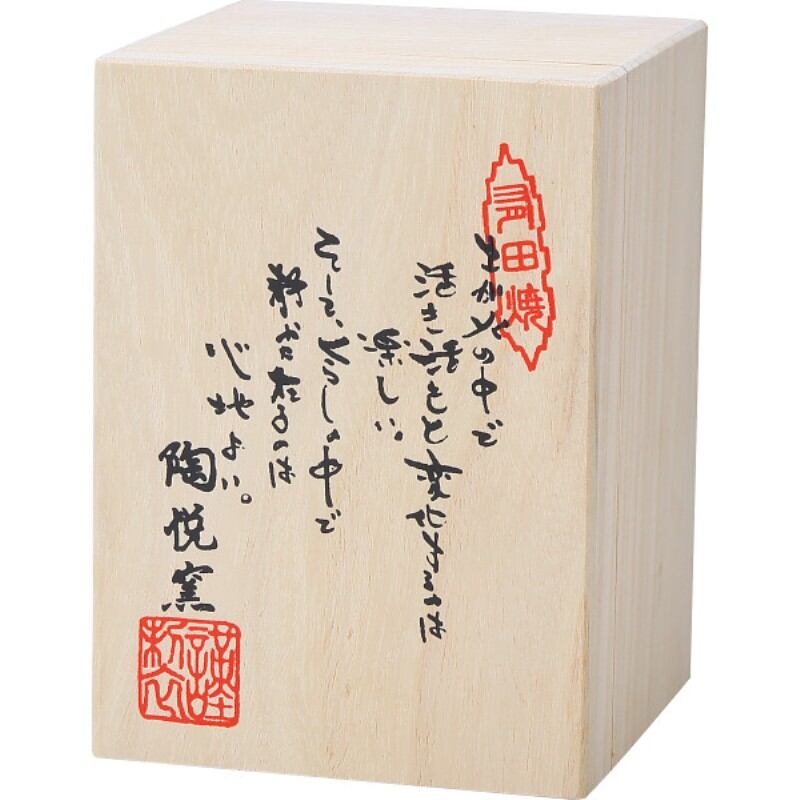 有田焼
土が火の中で
活き活きと変化するのは
楽しい
そして、くらしの中で
静かに在るのは
心地よい。
陶悦窯
謹製